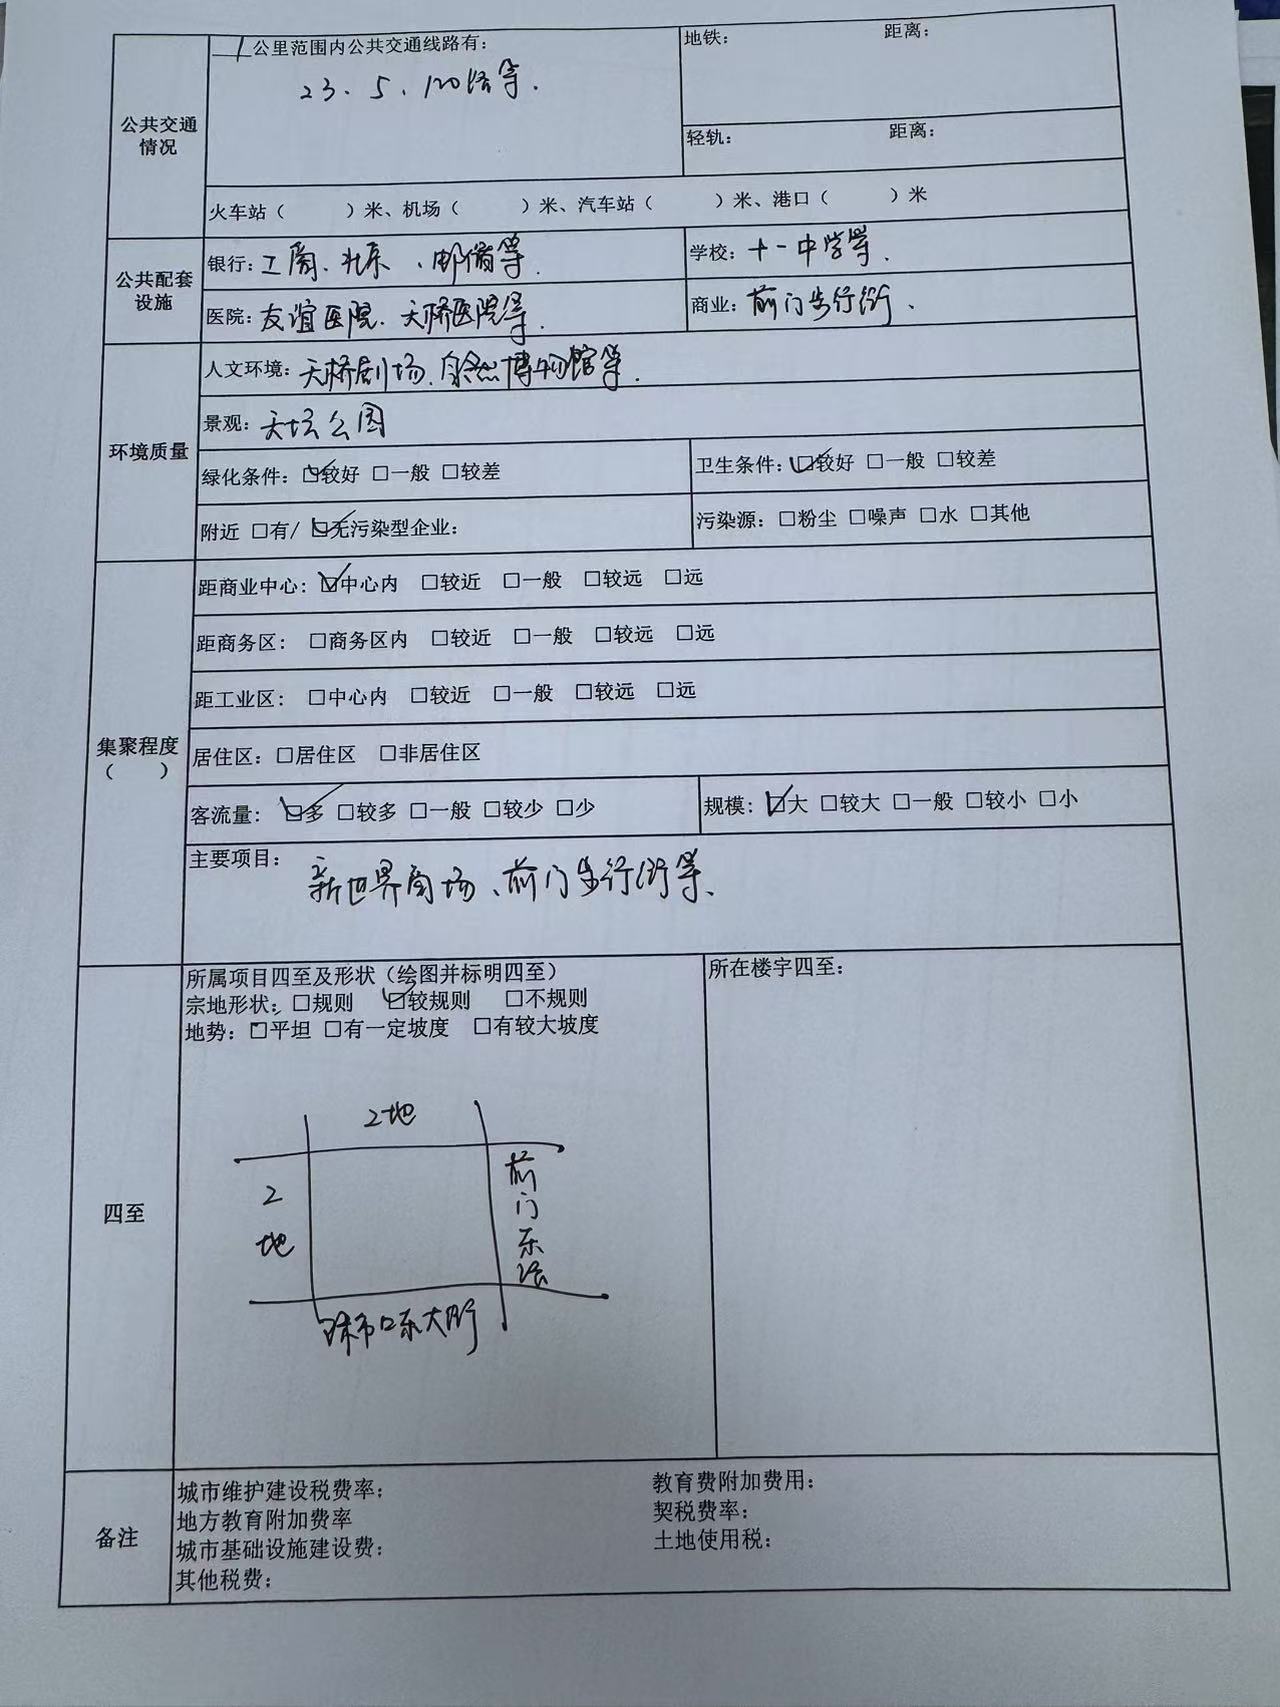 公共交通情况
1公里范围内公共交通线路有：
23、5、120路等.
地铁： 距离：
轻轨： 距离：
火车站（ ）米、机场（ ）米、汽车站（ ）米、港口（ ）米
公共配套设施
银行：工商、北京、邮储等.
学校：十一中学等.
医院：友谊医院、天桥医院等.
商业：前门步行街.
环境质量
人文环境：天桥剧场、自然博物馆等.
景观：天坛公园
绿化条件：☑较好 □一般 □较差
卫生条件：☑较好 □一般 □较差
附近 □有/ ☑无污染型企业：
污染源：□粉尘 □噪声 □水 □其他
集聚程度（ ）
距商业中心：☑中心内 □较近 □一般 □较远 □远
距商务区： □商务区内 □较近 □一般 □较远 □远
距工业区： □中心内 □较近 □一般 □较远 □远
居住区：□居住区 □非居住区
客流量： ☑多 □较多 □一般 □较少 □少
规模：☑大 □较大 □一般 □较小 □小
主要项目：
新世界商场、前门步行街等.
四至
所属项目四至及形状（绘图并标明四至）
宗地形状：□规则 ☑较规则 □不规则
地势：☑平坦 □有一定坡度 □有较大坡度
所在楼宇四至：
2地
2地
前门东路
珠市口东大街
备注
城市维护建设税费率： 教育费附加费用：
地方教育附加费率 契税费率：
城市基础设施建设费： 土地使用税：
其他税费：